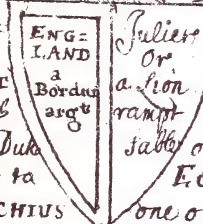 ENG-
LAND
a
Bordur
argt
Juliers
Or
a Lion
rampt
Sable
Duke
ta
CHIUS
one o